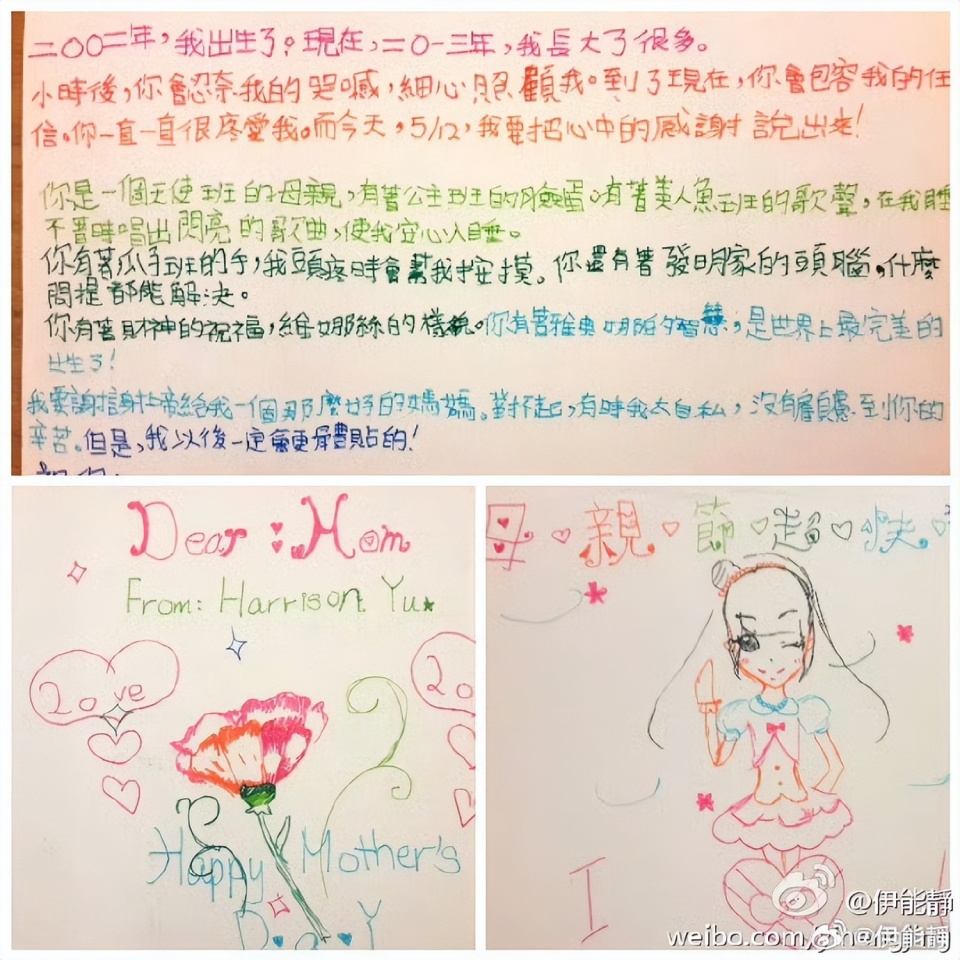 二〇〇二年，我出生了？現在，二〇一三年，我長大了很多。
小時後，你會忍奈我的哭喊，細心照顧我。到了現在，你會包容我的任
信。你一直一直很疼愛我。而今天，5/12，我要把心中的感謝說出來！
你是一個天使班的母親，有著公主班的臉蛋。有著美人魚班的歌聲，在我睡
不著時唱出閃亮的歌曲，使我安心入睡。
你有著瓜子班的手，我頭疼時會幫我按摸。你還有著發明家的頭腦，什麼
問提都能解決。
你有著財神的祝福，維娜絲的樣貌。你有著雅典娜的智慧，是世界上最完美的
出生了！
我要謝謝上帝給我一個那麼好的媽媽。對不起，有時我太自私，沒有顧慮到你的
辛苦。但是，我以後一定會更體貼的！
Dear : Mom
From: Harrison Yu
Love
Lo
Happy Mother's
Day
母親節超快
I
@伊能靜
weibo.com/
@伊能靜